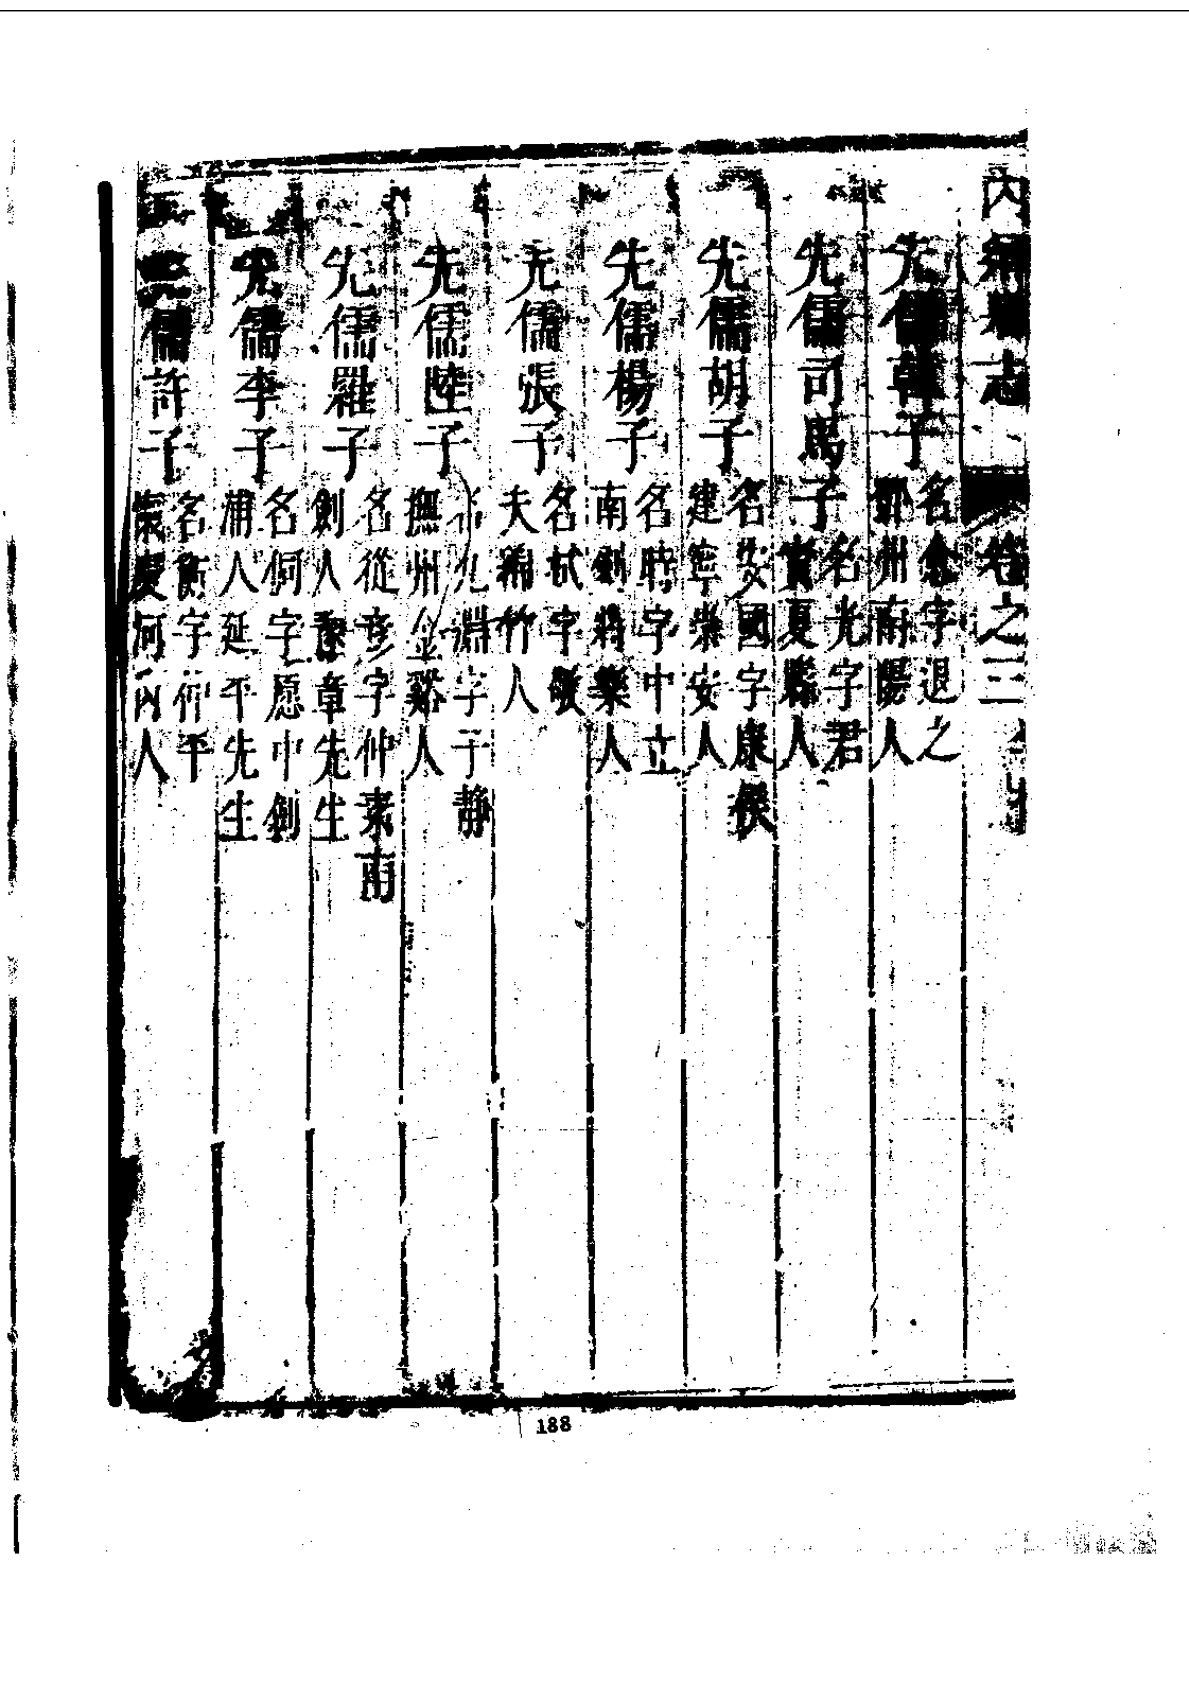 內 縣志 卷之三
先儒韓子 名愈字退之 鄧州南陽人
先儒司馬子 名光字君 實夏縣人
先儒胡子 名安國字康侯 建寧崇安人
先儒楊子 名時字中立 南劍將樂人
先儒張子 名栻字敬 夫綿竹人
先儒陸子 名九淵字子靜 撫州金谿人
先儒羅子 名從彥字仲素南 劍人豫章先生
先儒李子 名侗字愿中劍 浦人延平先生
先儒許子 名衡字仲平 懷慶河內人
188